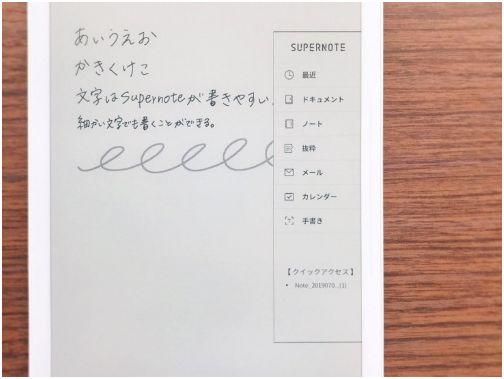 あいうえお
かきくけこ
文字はSupernoteが書きやすい.
細かい文字でも書くことができる。
SUPERNOTE
最近
ドキュメント
ノート
抜粋
メール
カレンダー
手書き
【クイックアクセス】
• Note_2019070...(1)